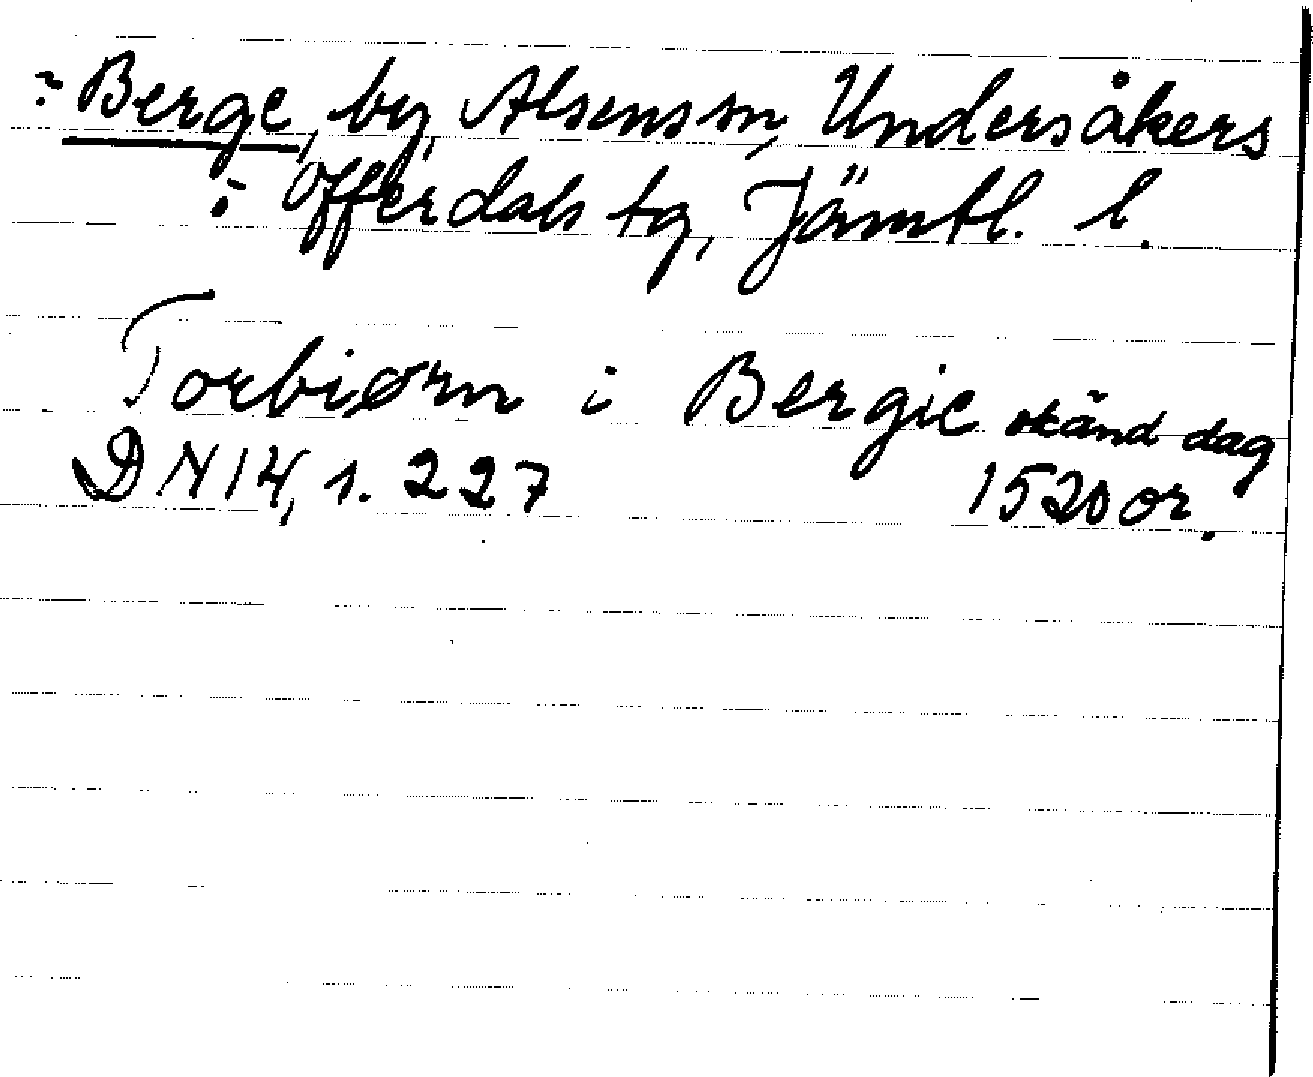 ? Berge, by, Alsens sn, Undersåkers
i Offerdals tg, Jämtl. l.
Torbiørn i Bergie okänd dag
DN 14, 1. 227 1520 or.